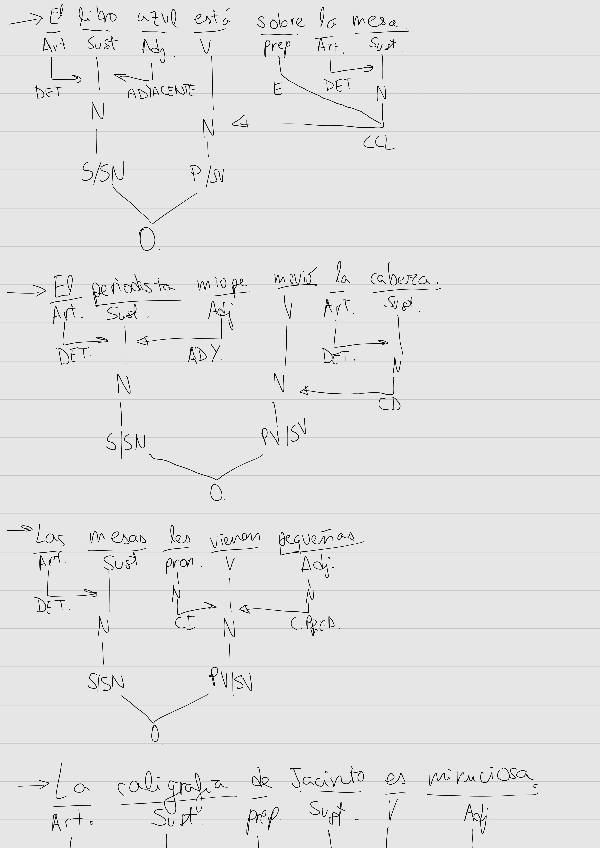 → El libro azul está sobre la mesa
Art Sust Adj. V prep Art. Sust
DET ADJACENTE E DET N
N N CCL
S/SN P/SV
O.
→ El periodista miope movió la cabeza.
Art. Sust. Adj V Art. Sust.
DET. ADY. DET. N
N N CD
S/SN PV/SV
O.
→ Las mesas les vienen pequeñas
Art. Sust pron. V Adj.
N N
DET. CI C.PRED.
N N
S/SN PV/SV
O
→ La caligrafía de Jacinto es minuciosa.
Art. Sust prep. Sust V Adj